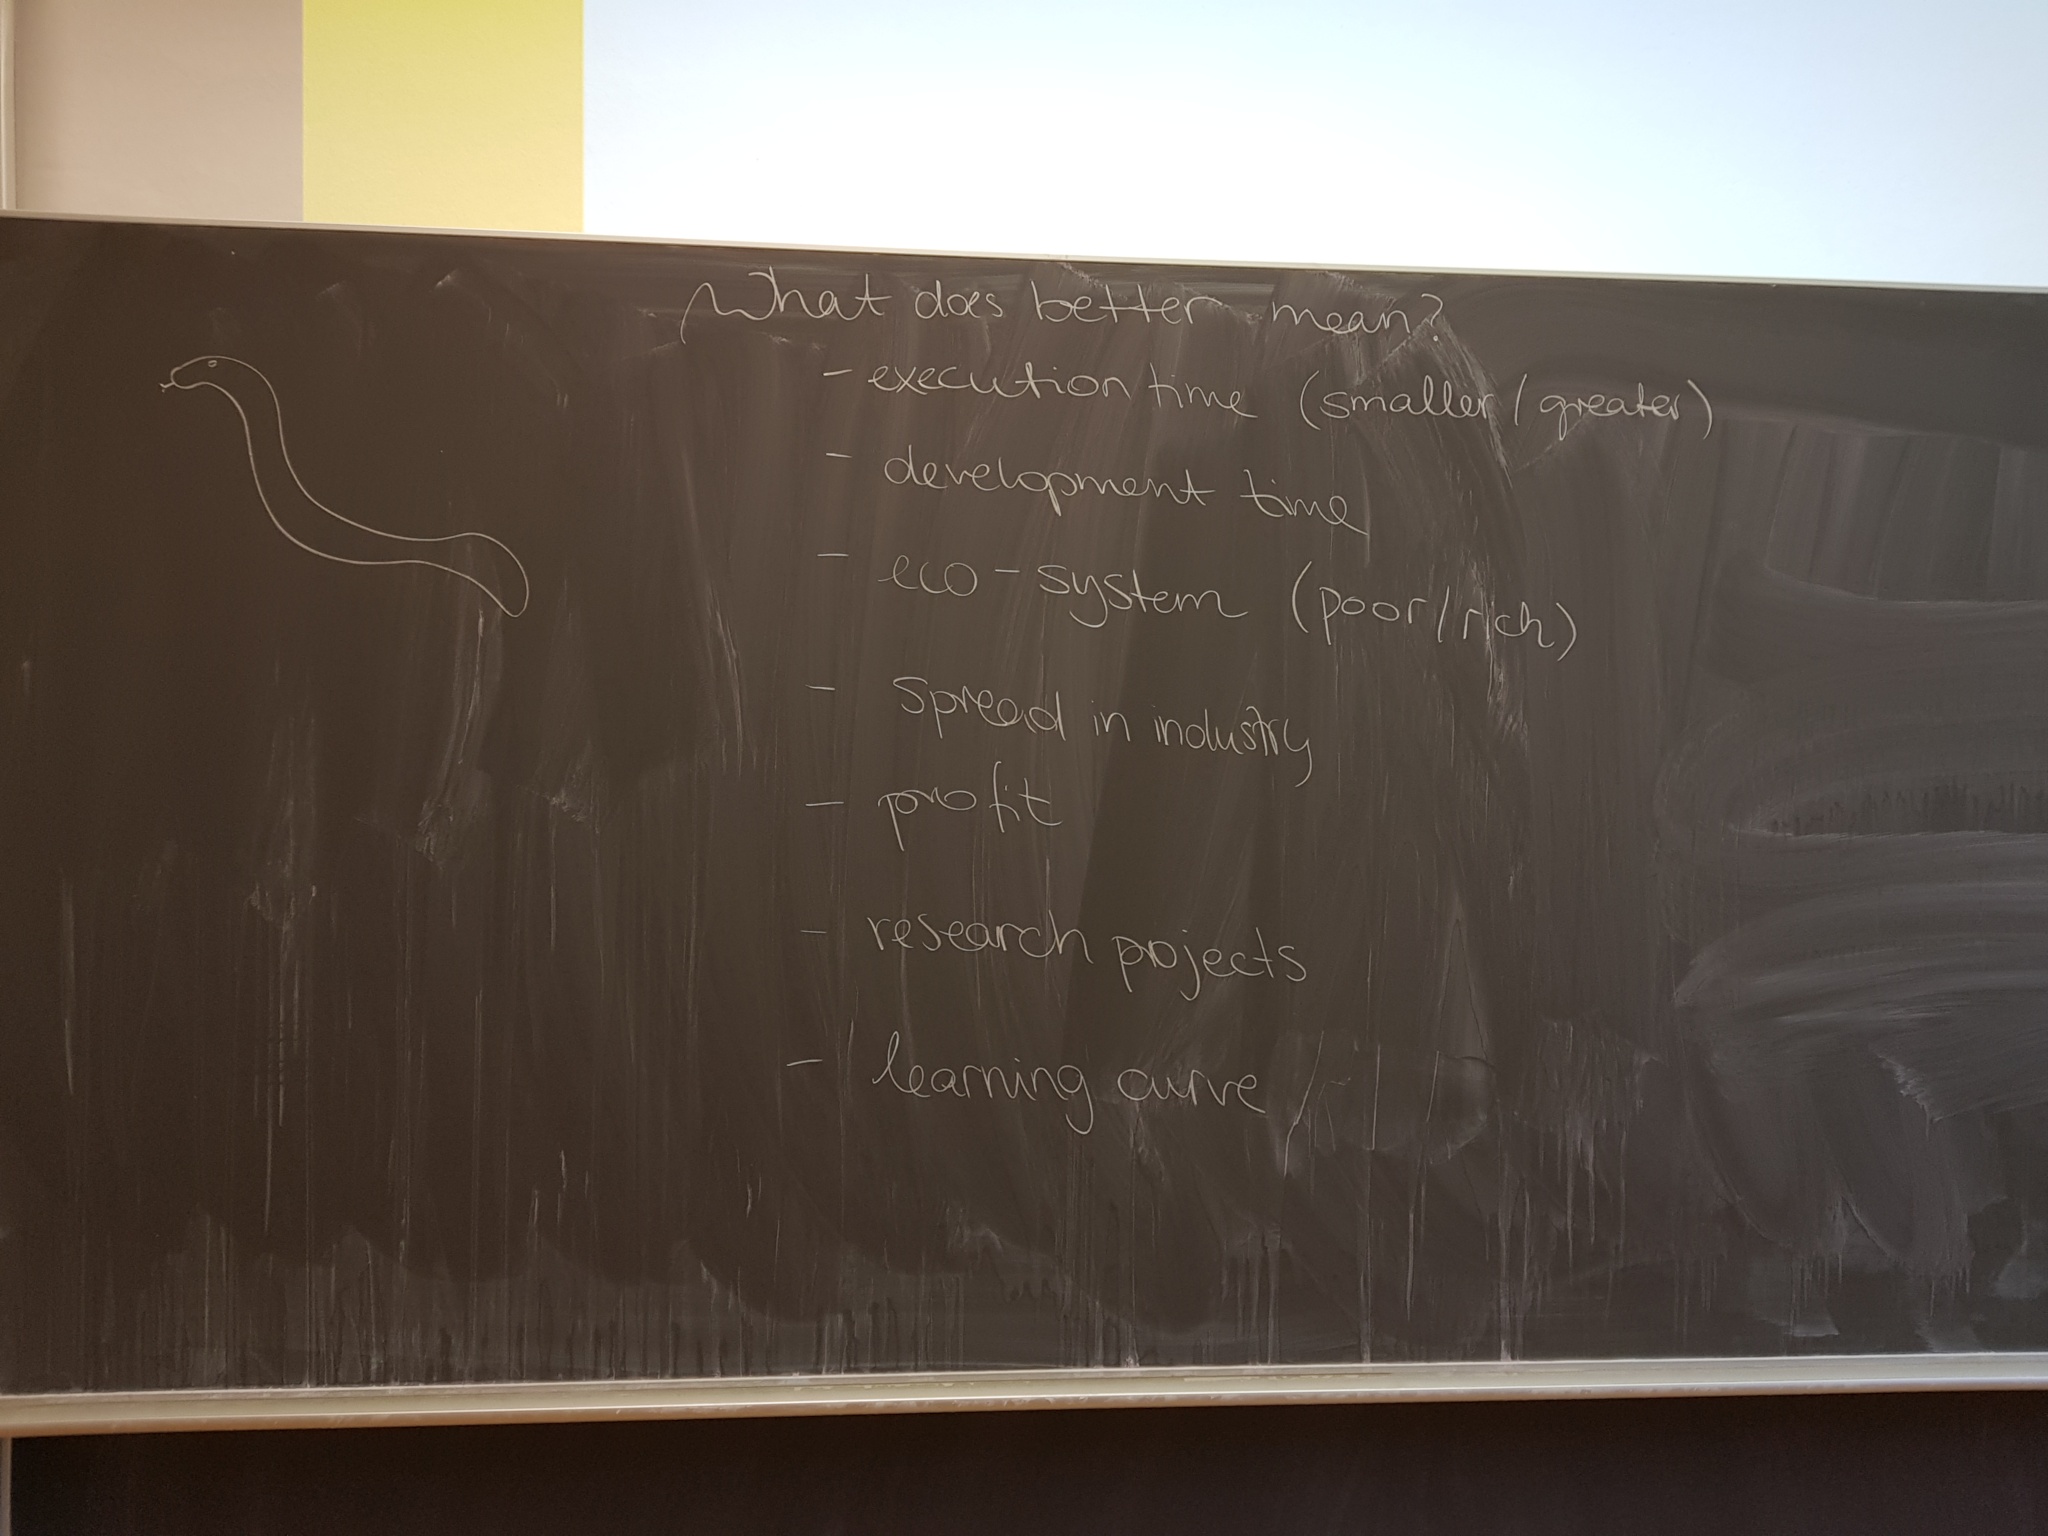 What does better mean?
- execution time (smaller / greater)
- development time
- eco-system (poor / rich)
- spread in industry
- profit
- research projects
- learning curve